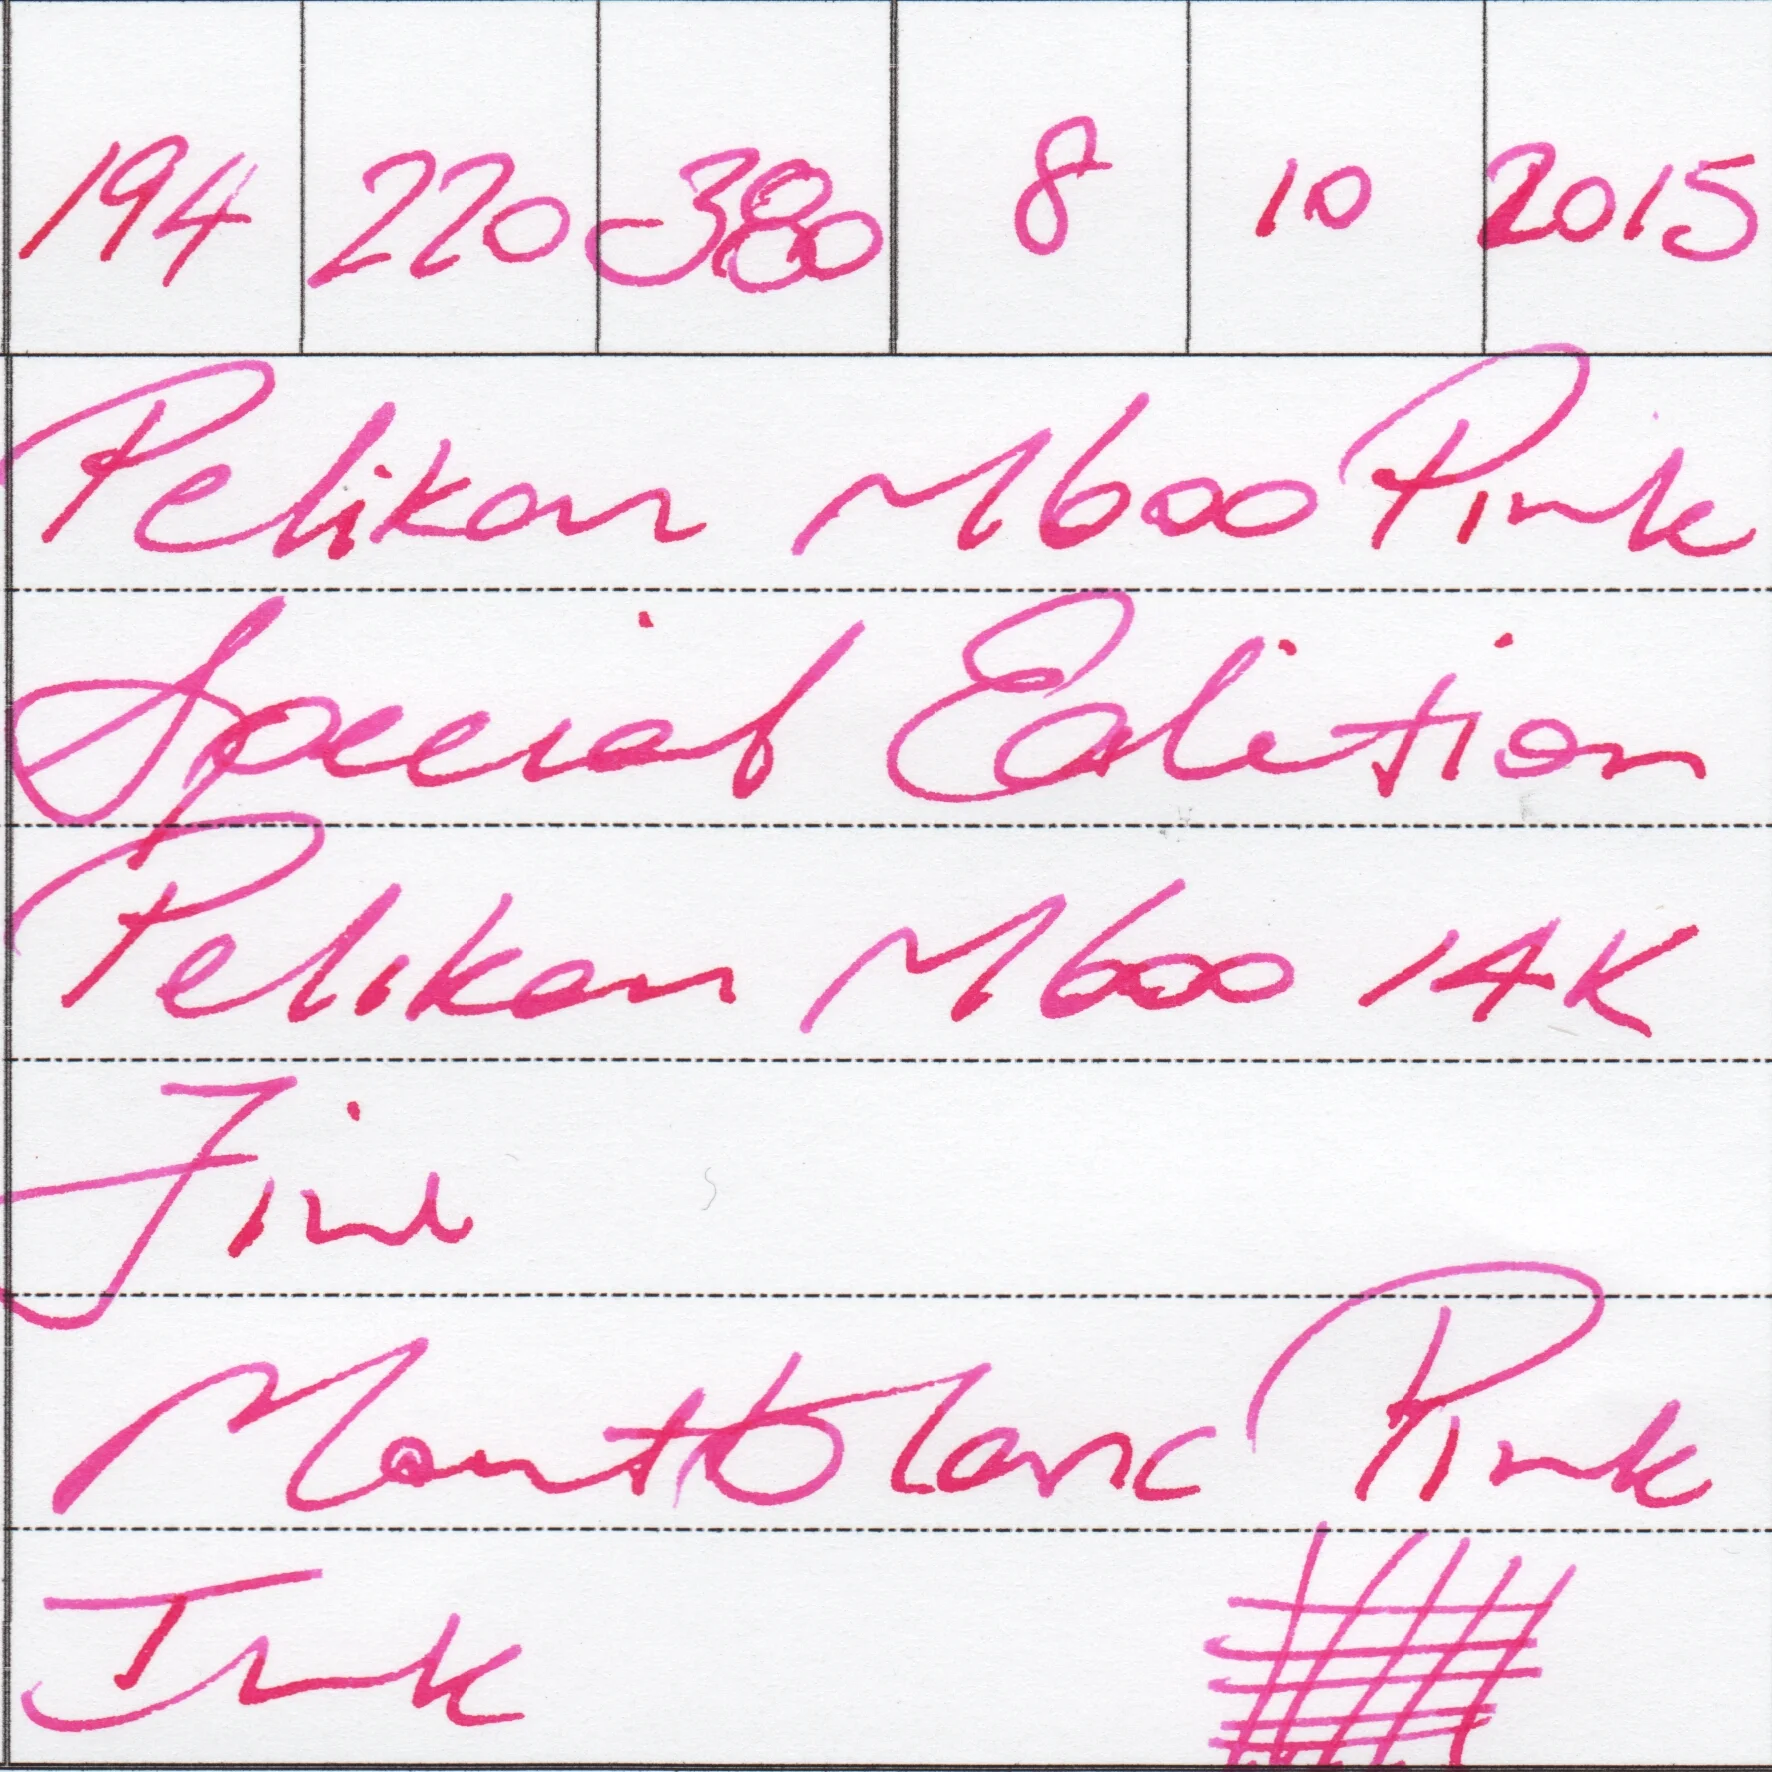 194 220 380 8 10 2015
Pelikan M600 Pink
Special Edition
Pelikan M600 14K
Fine
Montblanc Pink
Ink